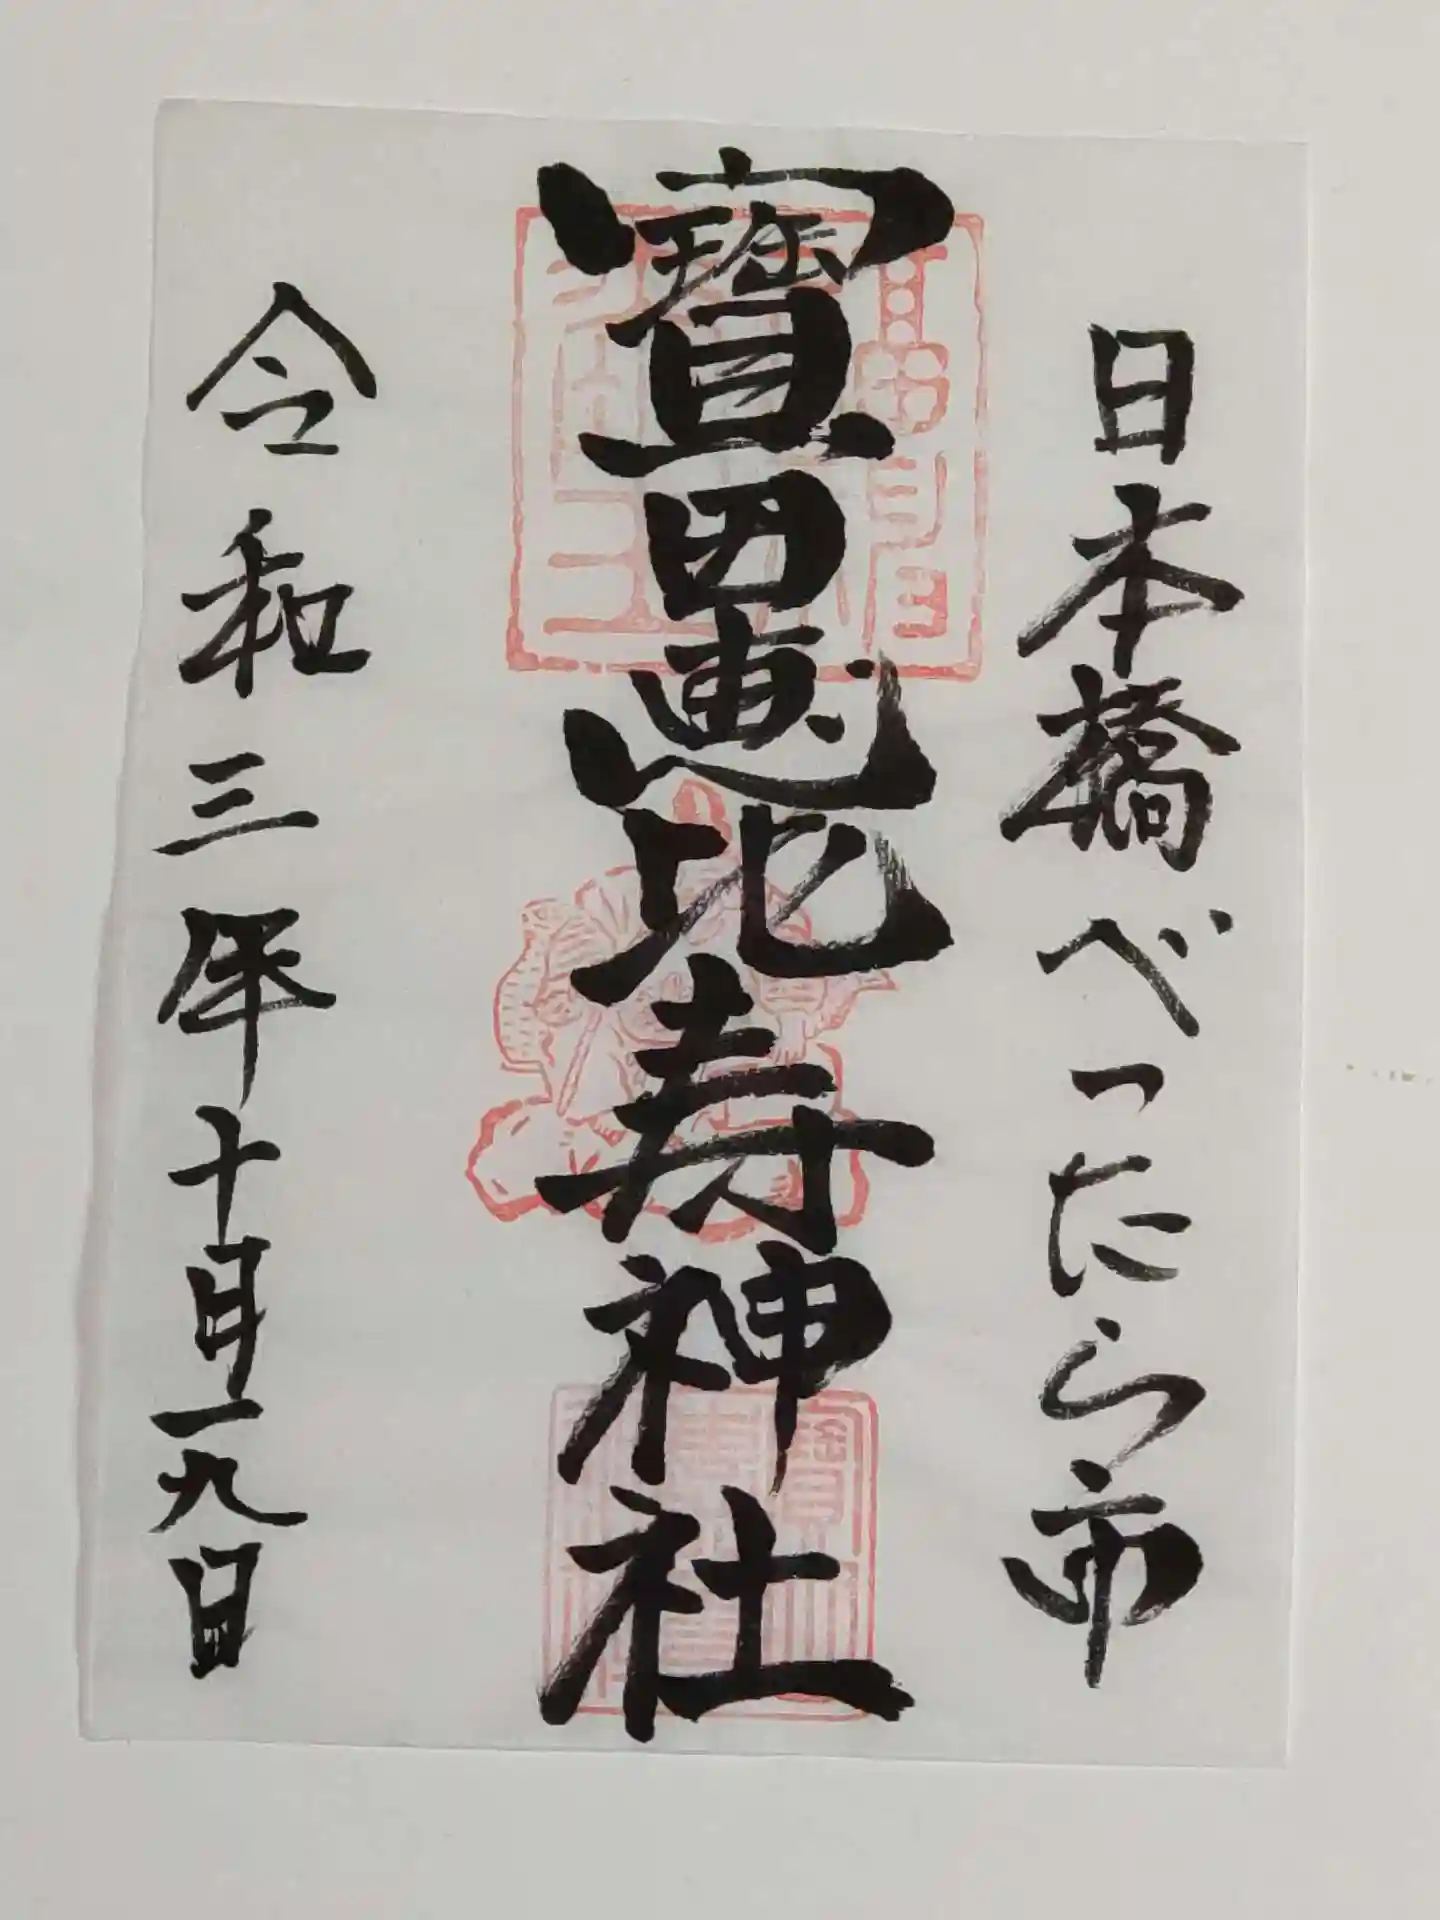 日本橋べったら市
寳田恵比寿神社
令和三年十月十九日